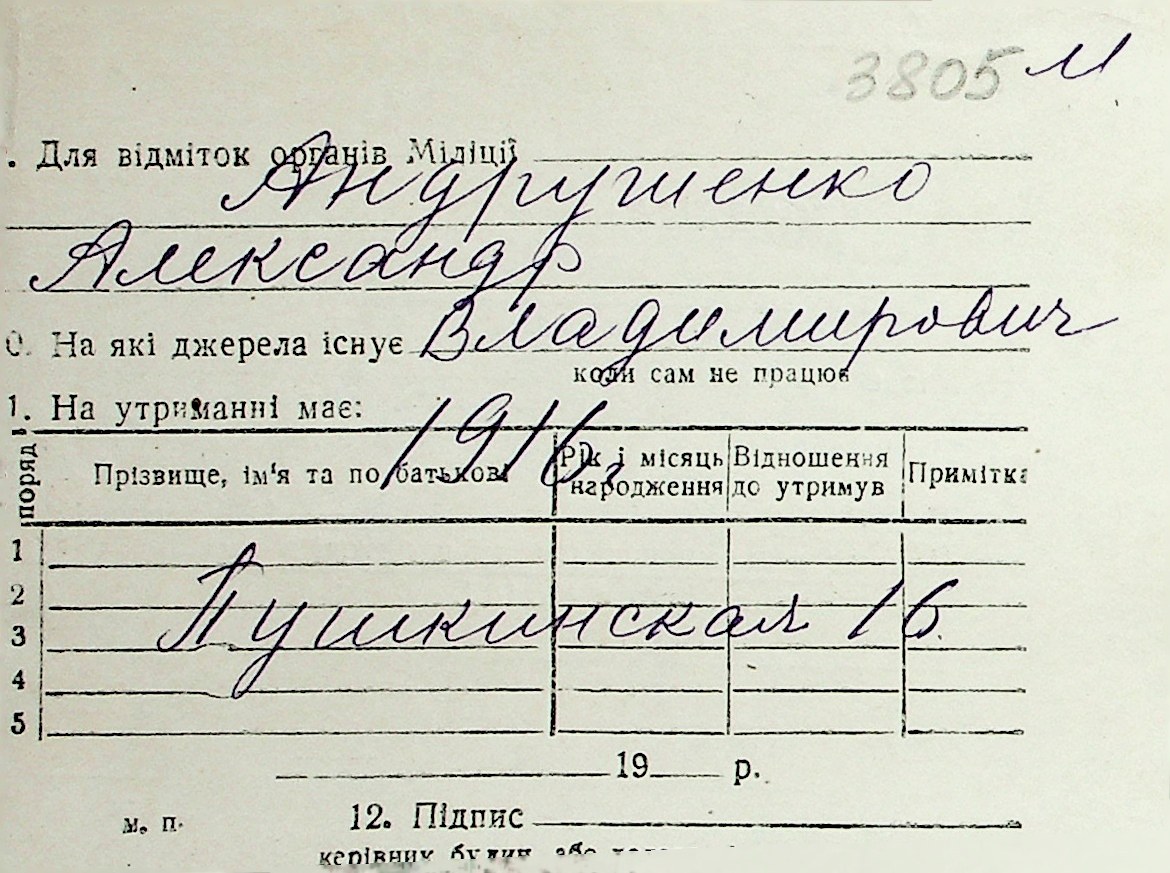 3805 м
. Для відміток органів Міліції
Андрушенко
Александр
Владимирович
0. На які джерела існує
коли сам не працює
1. На утриманні має:
1916 г
поряд
Прізвище, ім'я та по батькові
Рік і місяць народження
Відношення до утримув
Примітка
1
2
Пушкинская 16
3
4
5
19 р.
м. п.
12. Підпис
керівник будин. або